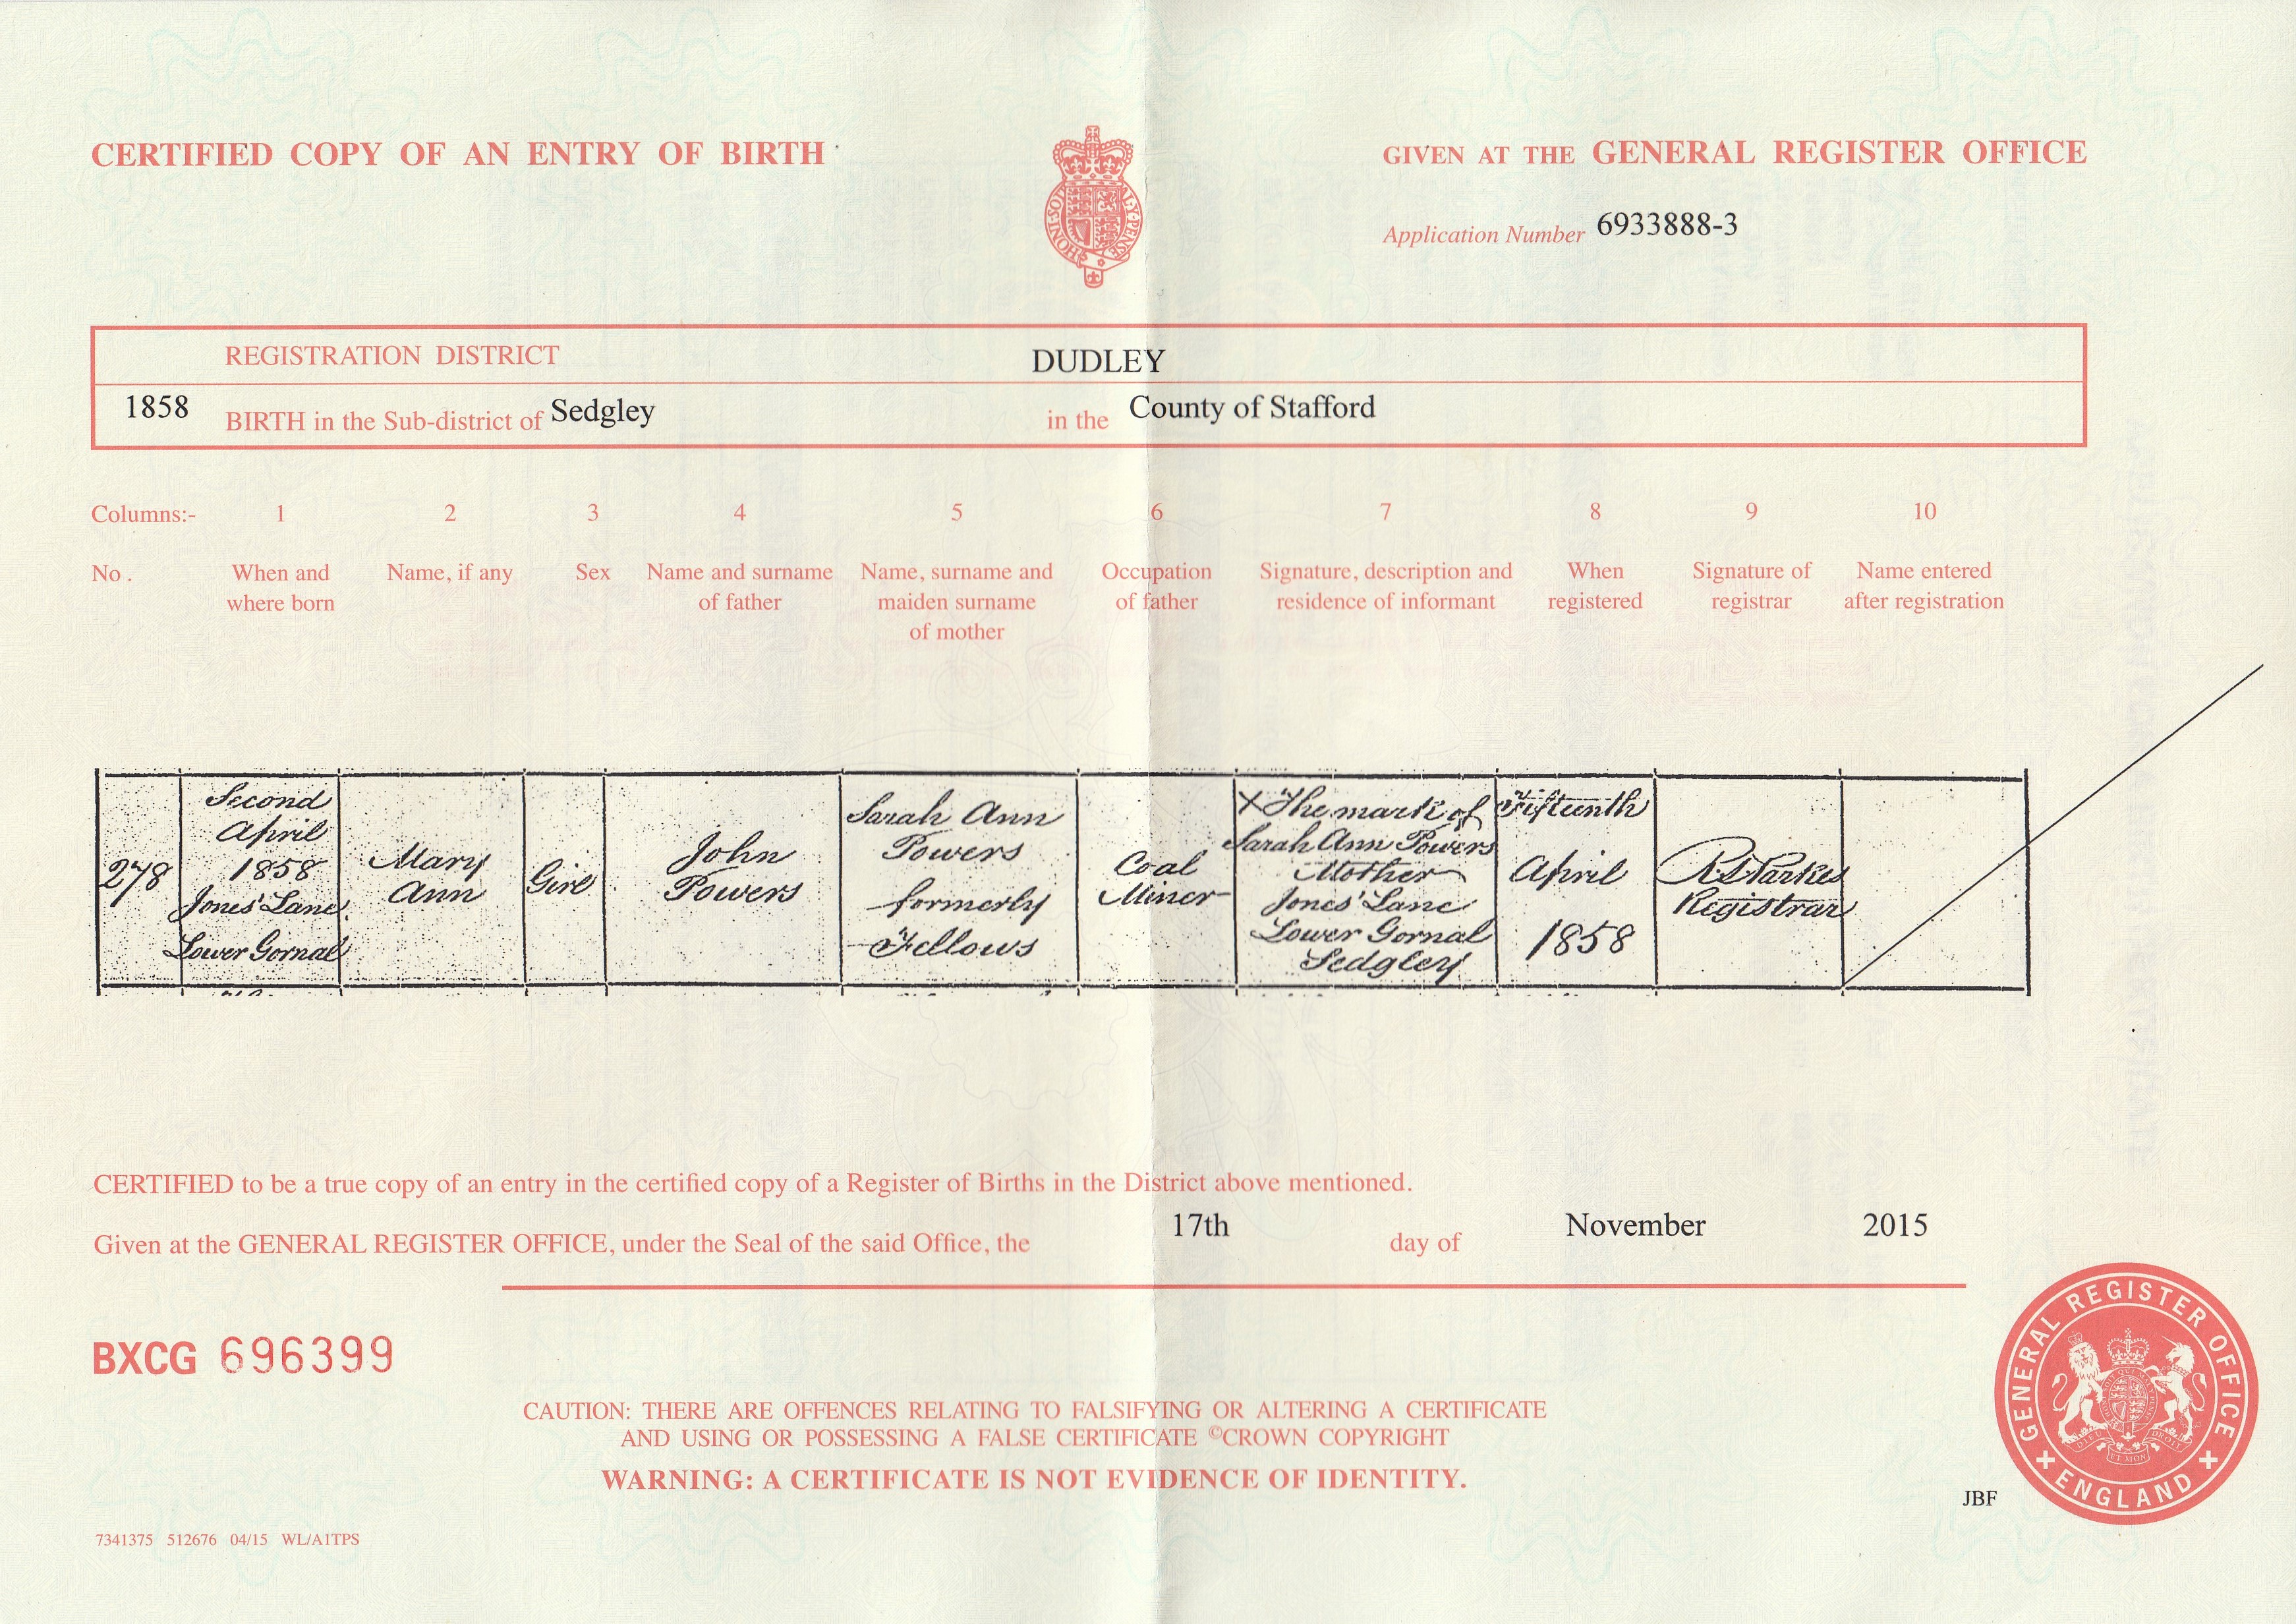 CERTIFIED COPY OF AN ENTRY OF BIRTH
GIVEN AT THE GENERAL REGISTER OFFICE
HONI·SOI
AL·Y·PENSE
Application Number 6933888-3
REGISTRATION DISTRICT DUDLEY
1858 BIRTH in the Sub-district of Sedgley in the County of Stafford
Columns:- 1 2 3 4 5 6 7 8 9 10
No. When and where born
Name, if any
Sex
Name and surname of father
Name, surname and maiden surname of mother
Occupation of father
Signature, description and residence of informant
When registered
Signature of registrar
Name entered after registration
278
Second
April
1858
Jones' Lane
Lower Gornal
Mary
Ann
Girl
John
Powers
Sarah Ann
Powers
formerly
Fellows
Coal
Miner
X The mark of
Sarah Ann Powers
Mother
Jones' Lane
Lower Gornal
Sedgley
Fifteenth
April
1858
Parkes
Registrar
CERTIFIED to be a true copy of an entry in the certified copy of a Register of Births in the District above mentioned.
Given at the GENERAL REGISTER OFFICE, under the Seal of the said Office, the 17th day of November 2015
BXCG 696399
CAUTION: THERE ARE OFFENCES RELATING TO FALSIFYING OR ALTERING A CERTIFICATE
AND USING OR POSSESSING A FALSE CERTIFICATE ©CROWN COPYRIGHT
WARNING: A CERTIFICATE IS NOT EVIDENCE OF IDENTITY.
GENERAL REGISTER OFFICE
ENGLAND
JBF
7341375 512676 04/15 WL/A1TPS